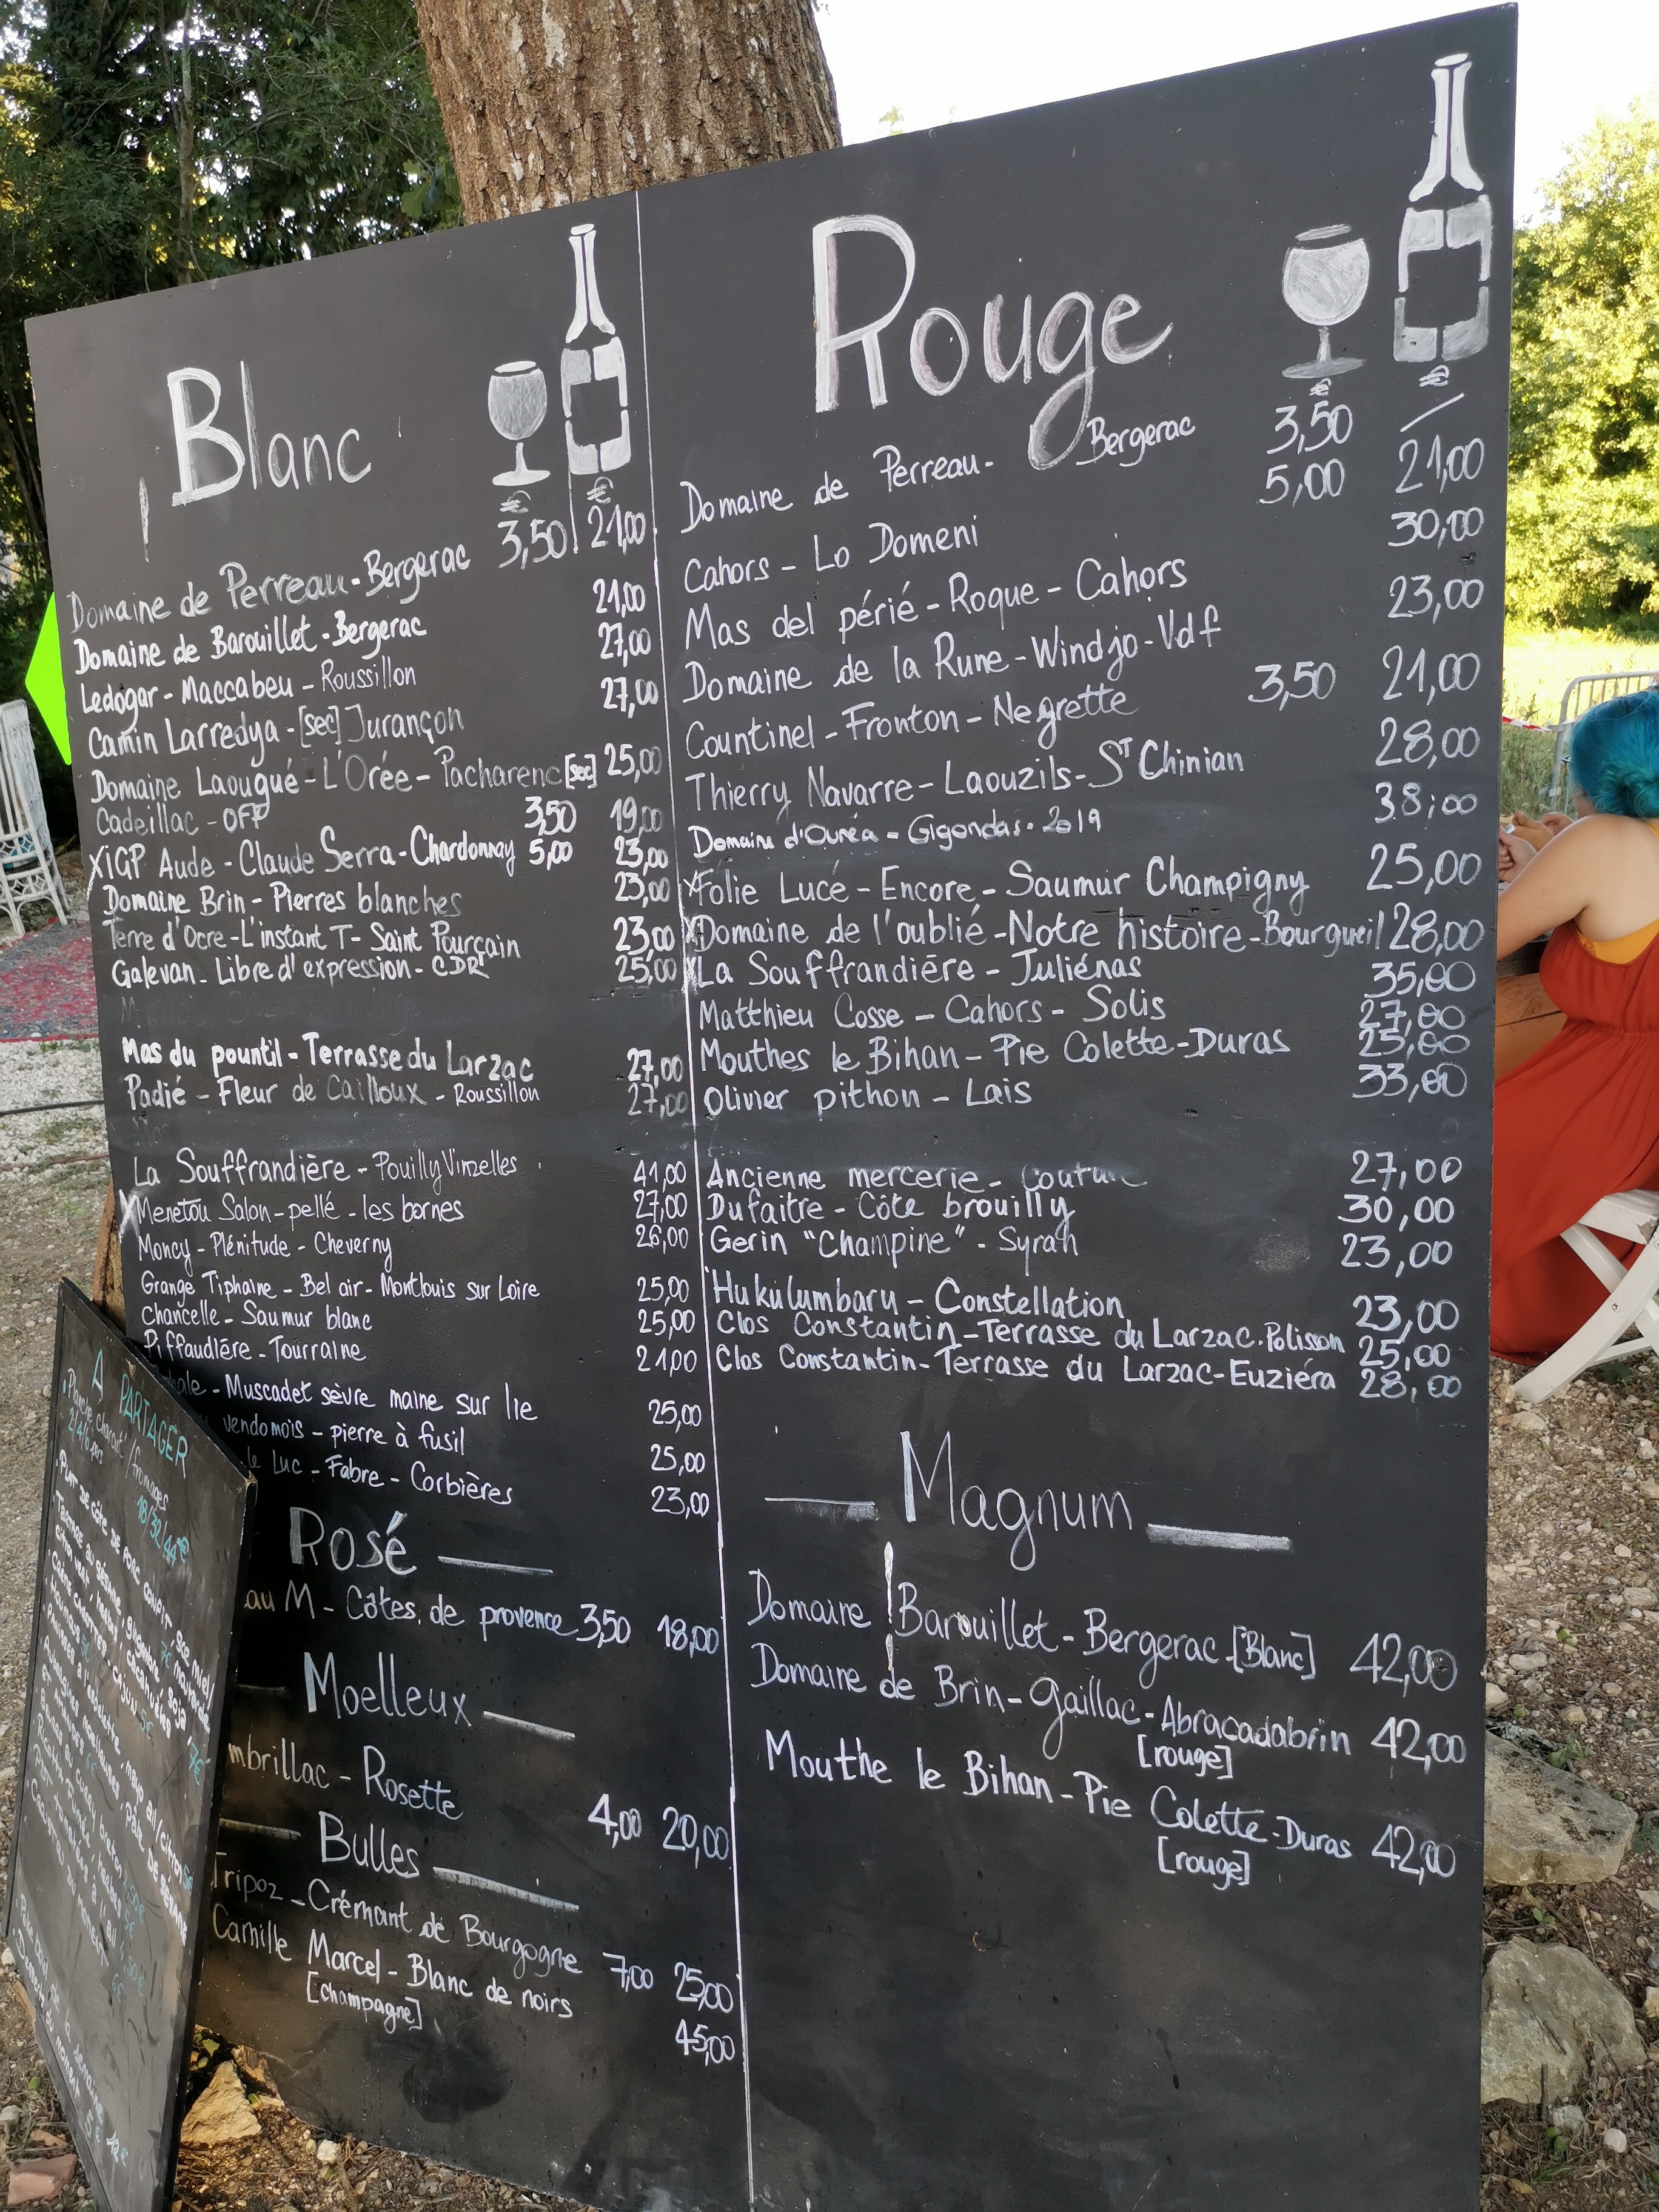 Blanc
€ €
Domaine de Perreau - Bergerac 3,50 21,00
Domaine de Barouillet - Bergerac 21,00
Ledogar - Maccabeu - Roussillon 27,00
Camin Larredya - [sec] Jurançon 27,00
Domaine Laougué - L'Orée - Pacharenc [sec] 25,00
Cadeillac - OFF 3,50 19,00
X IGP Aude - Claude Serra - Chardonnay 5,00 23,00
Domaine Brin - Pierres blanches 23,00
Terre d'Ocre - L'instant T - Saint Pourçain 23,00
Galevan - Libre d'expression - CDR 25,00
Mas du pountil - Terrasse du Larzac 27,00
Padié - Fleur de Cailloux - Roussillon 27,00
La Souffrandière - Pouilly Vinzelles 41,00
X Menetou Salon - pellé - les bornes 27,00
Moncy - Plénitude - Cheverny 26,00
Grange Tiphaine - Bel air - Montlouis sur Loire 25,00
Chancelle - Saumur blanc 25,00
Piffaudière - Tourraine 21,00
- Muscadet sèvre maine sur lie 25,00
vendomois - pierre à fusil 25,00
Luc - Fabre - Corbières 23,00
Rosé
M - Côtes de provence 3,50 18,00
Moelleux
- Rosette 4,00 20,00
Bulles
Tripoz - Crémant de Bourgogne 7,00 25,00
Camille Marcel - Blanc de noirs 45,00
[champagne]
Rouge
€ €
Domaine de Perreau - Bergerac 3,50 21,00
Cahors - Lo Domeni 5,00 21,00
Mas del périé - Roque - Cahors 30,00
Domaine de la Rune - Windjo - Vdf 23,00
Countinel - Fronton - Negrette 3,50 21,00
Thierry Navarre - Laouzils - St Chinian 28,00
Domaine d'Ouréa - Gigondas - 2019 38,00
X Folie Lucé - Encore - Saumur Champigny 25,00
X Domaine de l'oublié - Notre histoire - Bourgueil 28,00
X La Souffrandière - Juliénas 35,00
Matthieu Cosse - Cahors - Solis 27,00
Mouthes le Bihan - Pie Colette - Duras 25,00
Olivier pithon - Lais 33,00
Ancienne mercerie - Couture 27,00
Dufaitre - Côte brouilly 30,00
Gerin "Champine" - Syrah 23,00
Hukulumbaru - Constellation 23,00
Clos Constantin - Terrasse du Larzac - Polisson 25,00
Clos Constantin - Terrasse du Larzac - Euziéra 28,00
Magnum
Domaine Barouillet - Bergerac - [Blanc] 42,00
Domaine de Brin - Gaillac - Abracadabrin 42,00
[rouge]
Mouthe le Bihan - Pie Colette - Duras 42,00
[rouge]
A PARTAGER
18/32/44€